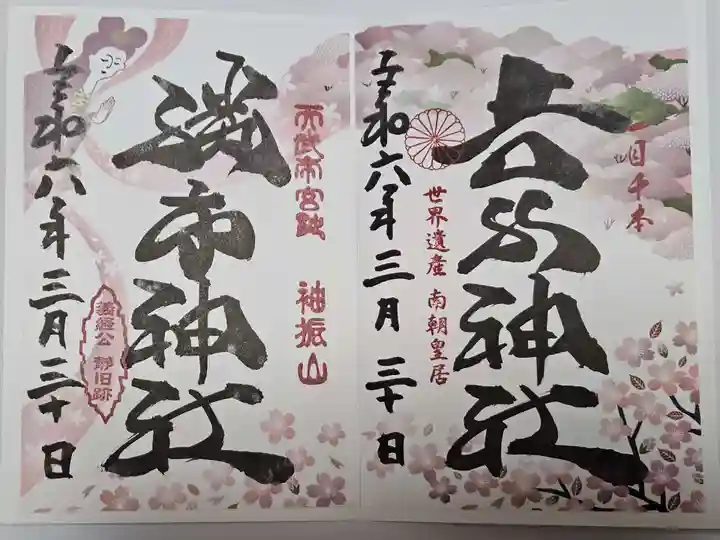 一目千本
吉水神社
世界遺産 南朝皇居
令和六年三月三十日
袖振山
勝手神社
義経公 静旧跡
令和六年三月三十日